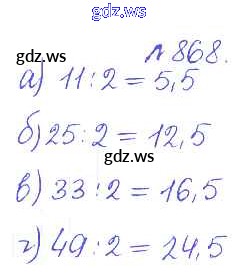 gdz.ws
№ 868.
gdz.ws
а) 11 : 2 = 5,5
б) 25 : 2 = 12,5
gdz.ws
в) 33 : 2 = 16,5
г) 49 : 2 = 24,5
gdz.ws